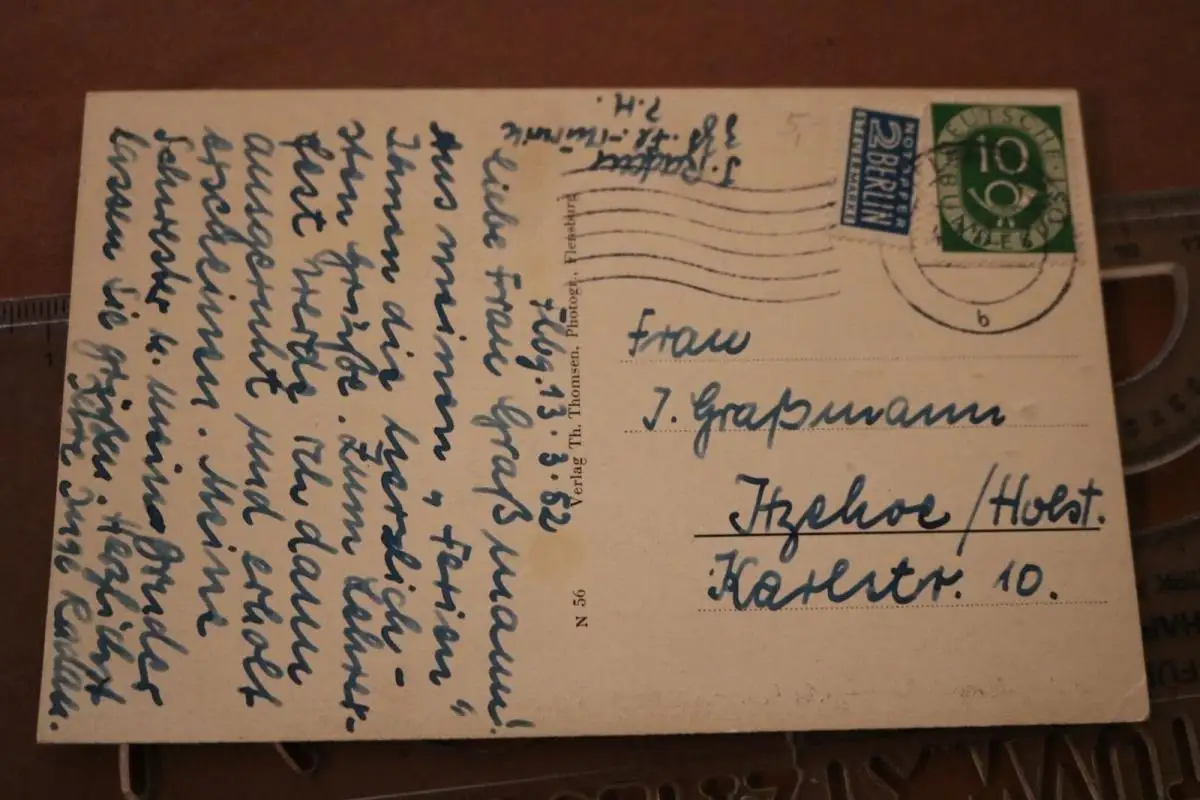 Flbg. 13.3.52
Liebe Frau Graßmann!
Aus meinen „Ferien"
Ihnen die herzlich-
sten Grüße. Zum Lehrer-
fest werde ich dann
ausgeruht und erholt
erscheinen. Meine
Schwester u. mein Bruder
lassen Sie grüßen. Herzlichst
Ihre Inge
N 56 Verlag Th. Thomsen, Photogr., Flensburg
5,-
NOTOPFER
2 BERLIN
STEUERMARKE
DEUTSCHE
10
BUNDESPOST
b
Frau
I. Graßmann
Itzehoe/Holst.
Karlstr. 10.